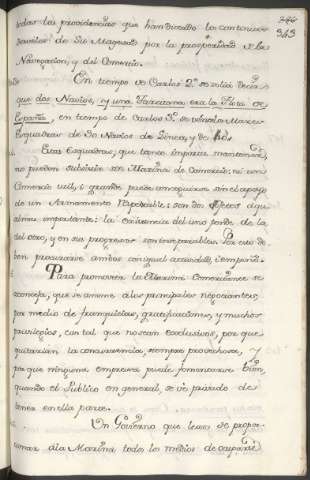 346
343
todas las providencias que han dictado los continuos
desvelos de Su Magestad por la prosperidad de la
Navegacion, y del Comercio.
En tiempo de Carlos 2.º se solia decir
que dos Navios, y una Tartana era la Flota de
España, en tiempo de Carlos 3.º se
Esquadras de 30 Navios de Linea, y de
Estas Esquadras, que tanto importa mantener,
no pueden subsistir sin Marina de Comercio: ni un
Comercio util, i grande puede conseguirse sin el apoyo
de un Armamento Respetable: son dos objetos igu-
almente importantes: la existencia del uno pende de la
del otro, y en sus progresos son inseparables. Por esto de-
ben procurarse ambos con igual actividad, i empeño.
Para promover la Marina Comerciante se
aconseja, que se anime a los principales negociantes,
por medio de franquicias, gratificaciones, y muchos
privilegios, con tal que no sean exclusivos, por que
quitarian la concurrencia, siempre provechosa, y
por que ninguna empresa puede fomentarse bien,
quando el Publico en general, se ve privado de
tener en ella parte.
Un Govierno que lexos de propor-
cionar a la Marina todos los medios de ocuparse